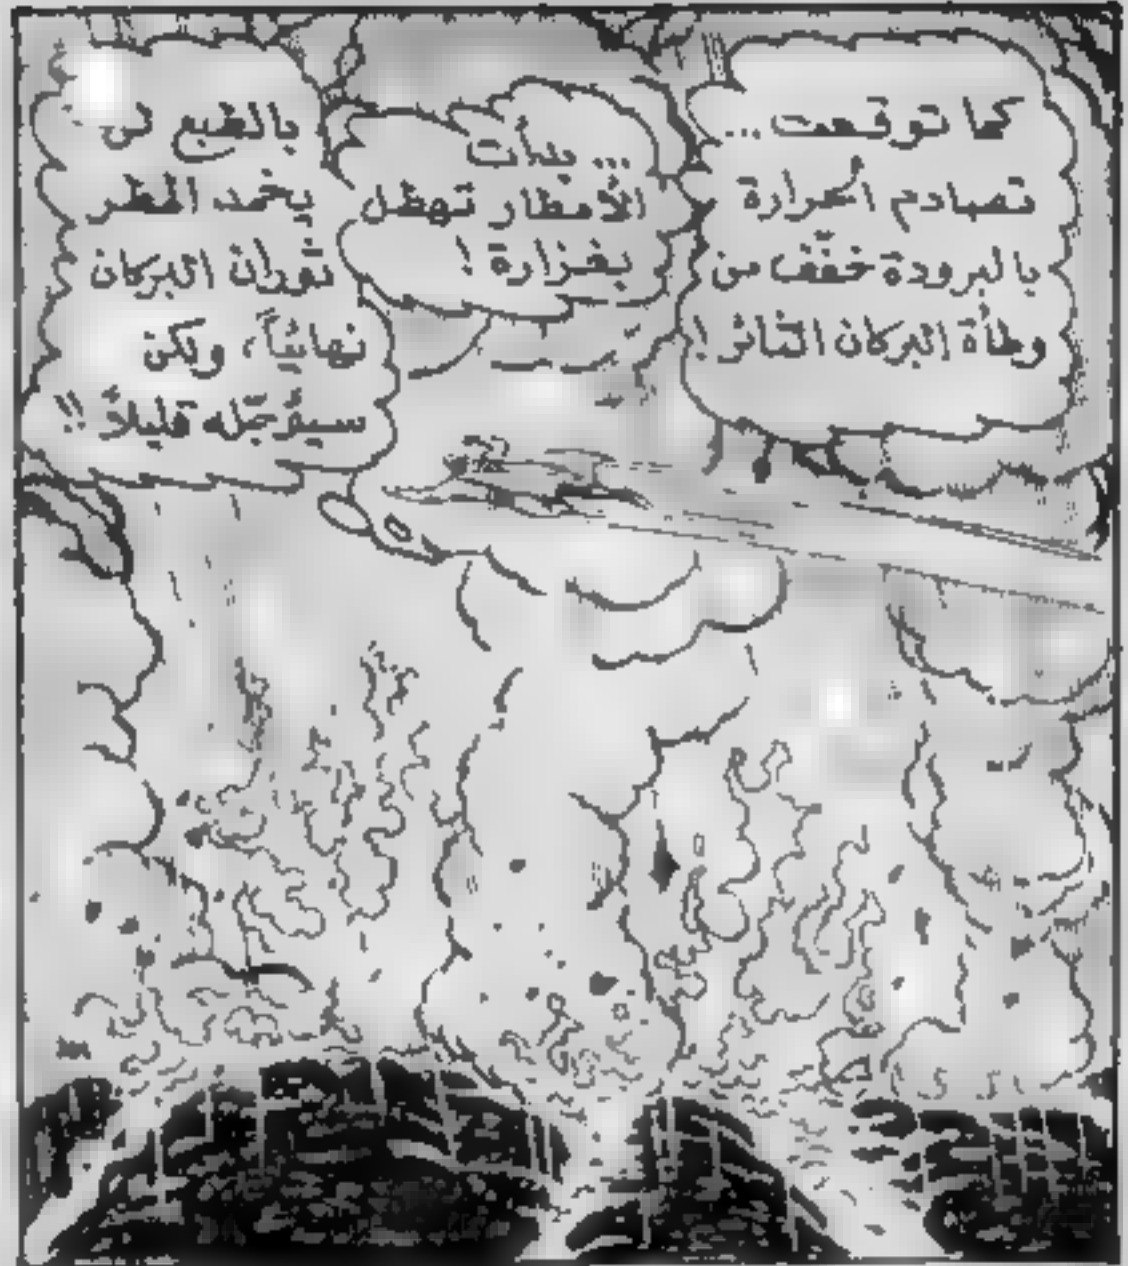 كما توقعت...
تصادم الحرارة
بالبرودة خفّف من
وطأة البركان الثائر!
... بدأت
الأمطار تهطل
بغزارة!
بالطبع لن
يخمد المطر
ثوران البركان
نهائياً، ولكن
سيؤجّله قليلاً!!